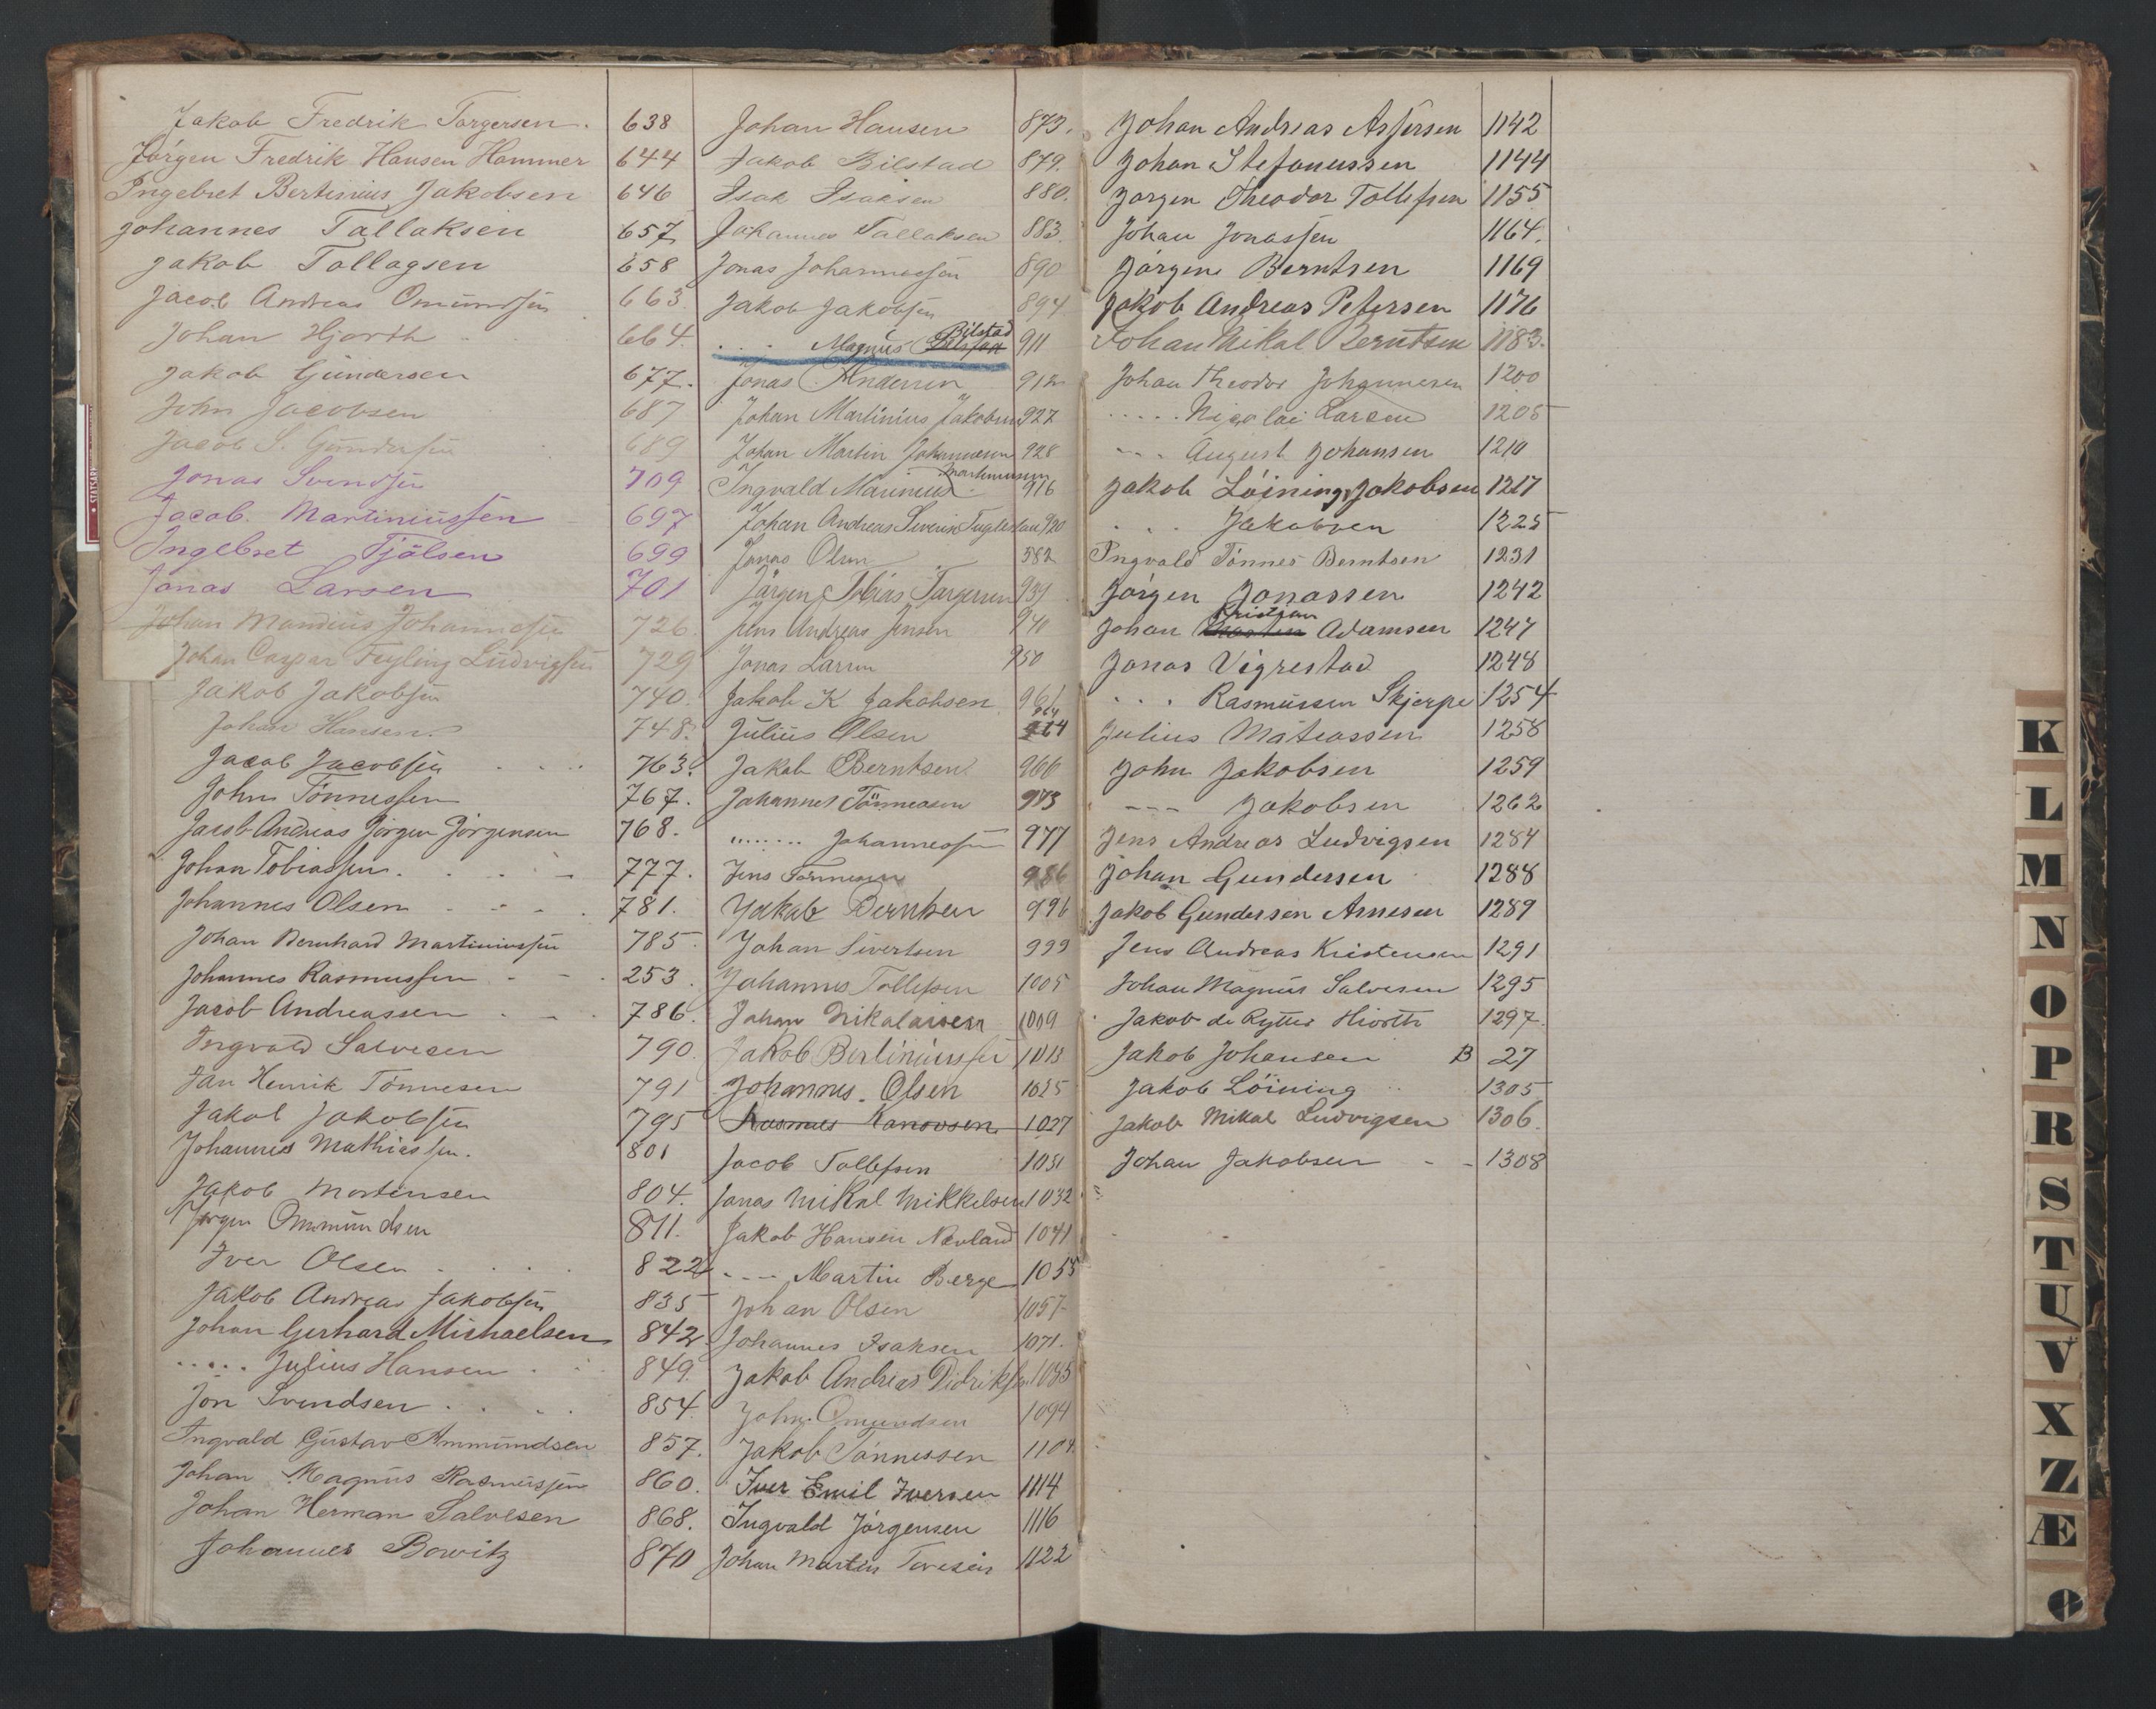 Jakob Fredrik Torgersen. 638
Jörgen Fredrik Hansen Hammer 644
Ingebret Bertinius Jakobsen 646
Johannes Tallaksen 657
Jakob Tollagsen 658
Jacob Andreas Omundsen 663
Johan Hjorth 664.
Jakob Gundersen 677.
John Jacobsen 687
Jacob S. Gundersen 689
Jonas Svendsen 709
Jacob. Martiniussen 697
Ingebret Tjölsen 699
Jonas Larsen 701
Johan Mandius Johannesen 726.
Johan Caspar Feyling Ludvigsen 729
Jakob Jakobsen 740.
Johan Hansen. 748.
Jacob Jacobsen 763.
John Tönnessen 767.
Jacob Andreas Jörgen Jörgensen 768.
Johan Tobiassen. 777.
Johannes Olsen 781.
Johan Bernhard Martiniussen 785.
Johannes Rasmussen 253.
Jacob Andreassen 786.
Ingvald Salvesen 790.
Jan Henrik Tönnesen 791
Jakob Jakobsen 795
Johannes Mathiassen. 801
Jakob Mortensen 804.
Jörgen Ommundsen 811.
Iver Olsen 822
Jakob Andreas Jakobsen 835
Johan Gerhard Michaelsen 842
..... Julius Hansen 849.
Jon Svendsen 854.
Ingvald Gustav Ammundsen 857.
Johan Magnus Rasmussen 860.
Johan Herman Salvesen 868.
Johannes Bowitz 870
Johan Hansen 873.
Jakob Bilstad 879.
Isak Isaksen 880.
Johannes Tallaksen 883.
Jonas Johannessen 890
Jakob Jakobsen 894
Bilstad
.... Magnus 911
Jonas Andersen 912
Johan Martinius Jakobsen 927
Johan Martin Johannesen 928
Martinussen
Ingvald Marinius 916
Johan Andreas Severin 920
Jonas Olsen 582
Jörgen Tobias Torgersen 931
Jens Andreas Jensen 940
Jonas Larsen 950
Jakob K Jakobsen 961
964
Julius Olsen
Jakob Berntsen 966
Johannes Tönnesen 973
........ Johannessen 977
Jens Tönnesen 986
Jakob Berntsen 996
Johan Sivertsen 999
Johannes Tollefsen 1005
Johan Nikolaisen 1009
Jakob Bertiniussen 1013
Johannes. Olsen 1025
Rasmus 1027
Jacob Tollefsen 1031
Jonas Mikal Mikkelsen 1032
Jakob Hansen Nævland 1041
---- Martin Berge 1055
Johan Olsen 1057
Johannes Isaksen 1071.
Jakob Andreas Didriksen 1085
John Omundsen 1094
Jakob Tönnessen 1104
Iver Emil Iversen 1114
Ingvald Jörgensen 1116
Johan Martin Teresen 1122
Johan Andreas Asfersen 1142
Johan Stefanussen 1144
Jörgen Theodor Tollefsen 1155
Johan Jonassen 1164.
Jörgen Berntsen 1169
Jakob Andreas Petersen 1176
Johan Mikal Berntsen 1183.
Johan Theodor Johannesen 1200
..... Nicolai Larsen 1205
--- August Johansen 1210
Jakob Löining Jakobsen 1217
. . . Jakobsen 1225
Ingvald Tönnes Berntsen 1231
Jörgen Jonassen 1242
Kristian
Johan Adamsen 1247
Jonas Vigrestad 1248
. . . Rasmussen Skjerpe 1254
Julius Matiassen 1258
John Jakobsen 1259
--- Jakobsen 1262
Jens Andreas Ludvigsen 1284
Johan Gundersen 1288
Jakob Gundersen Arnesen 1289
Jens Andreas Kristensen 1291
Johan Magnus Salvesen 1295
Jakob de Rytter Hiorth 1297.
Jakob Johansen B 27
Jakob Löining 1305
Jakob Mikal Ludvigsen 1306.
Johan Jakobsen - - 1308
K
L
M
N
O
P
R
S
T
U
V
X
Z
Æ
Ø